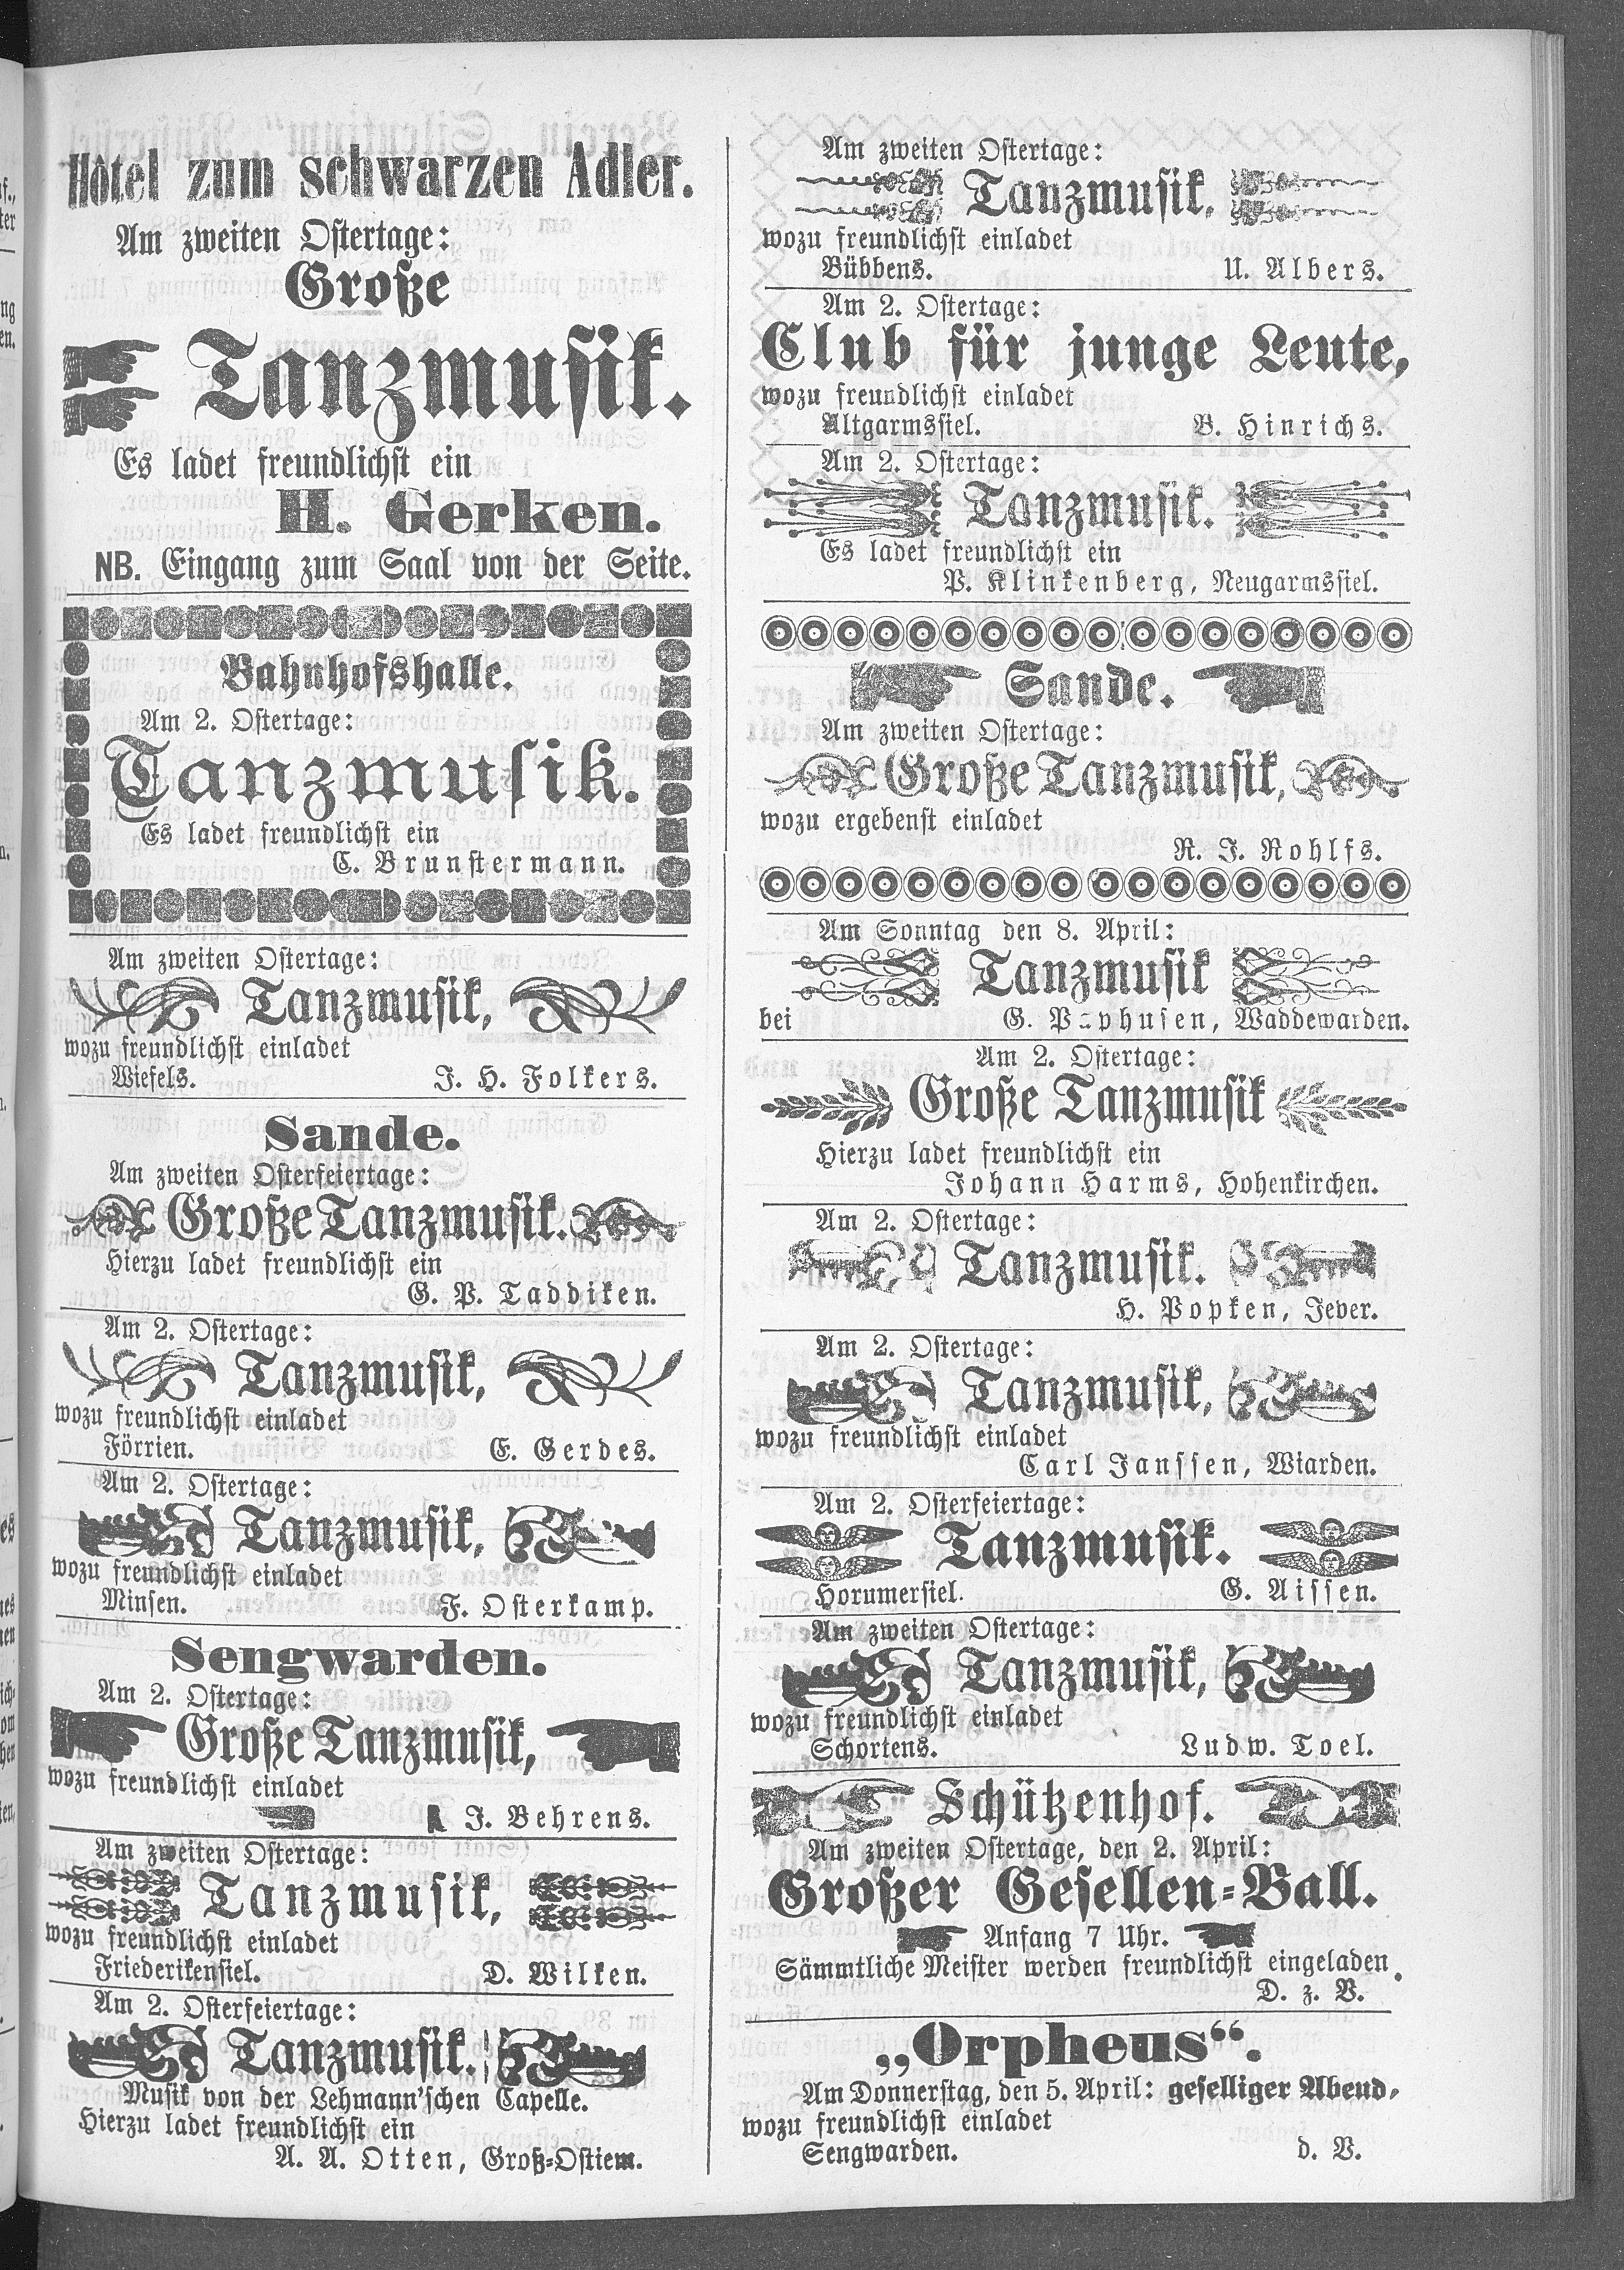 Hôtel zum schwarzen Adler.
Am zweiten Ostertage:
Große
Tanzmusik.
Es ladet freundlichst ein
H. Gerken.
NB. Eingang zum Saal von der Seite.
Bahnhofshalle.
Am 2. Ostertage:
Tanzmusik.
Es ladet freundlichst ein
C. Brunstermann.
Am zweiten Ostertage:
Tanzmusik,
wozu freundlichst einladet
Wiefels. J. H. Folkers.
Sande.
Am zweiten Osterfeiertage:
Große Tanzmusik.
Hierzu ladet freundlichst ein
G. P. Taddiken.
Am 2. Ostertage:
Tanzmusik,
wozu freundlichst einladet
Förrien. E. Gerdes.
Am 2. Ostertage:
Tanzmusik,
wozu freundlichst einladet
Minsen. F. Osterkamp.
Sengwarden.
Am 2. Ostertage:
Große Tanzmusik,
wozu freundlichst einladet
J. Behrens.
Am zweiten Ostertage:
Tanzmusik,
wozu freundlichst einladet
Friederikensiel. D. Wilken.
Am 2. Osterfeiertage:
Tanzmusik.
Musik von der Lehmann'schen Capelle.
Hierzu ladet freundlichst ein
A. A. Otten, Groß-Ostiem.
Am zweiten Ostertage:
Tanzmusik,
wozu freundlichst einladet
Bübbens. U. Albers.
Am 2. Ostertage:
Club für junge Leute,
wozu freundlichst einladet
Altgarmssiel. B. Hinrichs.
Am 2. Ostertage:
Tanzmusik.
Es ladet freundlichst ein
P. Klinkenberg, Neugarmssiel.
Sande.
Am zweiten Ostertage:
Große Tanzmusik,
wozu ergebenst einladet
R. J. Rohlfs.
Am Sonntag den 8. April:
Tanzmusik
bei G. Paphusen, Waddewarden.
Am 2. Ostertage:
Große Tanzmusik
Hierzu ladet freundlichst ein
Johann Harms, Hohenkirchen.
Am 2. Ostertage:
Tanzmusik.
H. Popken, Jever.
Am 2. Ostertage:
Tanzmusik,
wozu freundlichst einladet
Carl Janssen, Wiarden.
Am 2. Osterfeiertage:
Tanzmusik.
Horumersiel. G. Aissen.
Am zweiten Ostertage:
Tanzmusik,
wozu freundlichst einladet
Schortens. Ludw. Toel.
Schützenhof.
Am zweiten Ostertage, den 2. April:
Großer Gesellen-Ball.
Anfang 7 Uhr.
Sämmtliche Meister werden freundlichst eingeladen.
D. z. V.
„Orpheus“.
Am Donnerstag, den 5. April: geselliger Abend,
wozu freundlichst einladet
Sengwarden. d. V.